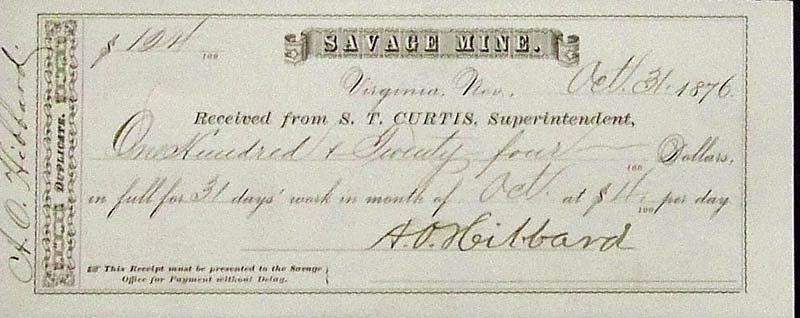 A. O. Hibbard.
DUPLICATE.
$ 124 100
SAVAGE MINE.
Virginia, Nev., Oct. 31, 1876.
Received from S. T. CURTIS, Superintendent,
One Hundred & Twenty four 100 Dollars,
in full for 31 days' work in month of Oct. at $ 4 100 per day
A. O. Hibbard
☞ This Receipt must be presented to the Savage
Office for Payment without Delay.